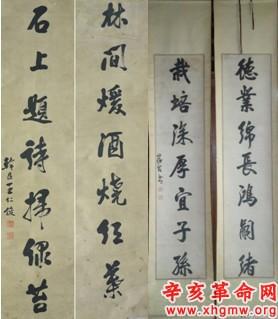 德業綿長鴻嗣緒
栽培深厚宜子孫
林間煖酒燒紅葉
石上題詩掃綠苔
王仁俊
辛亥革命网
www.xhgmw.org